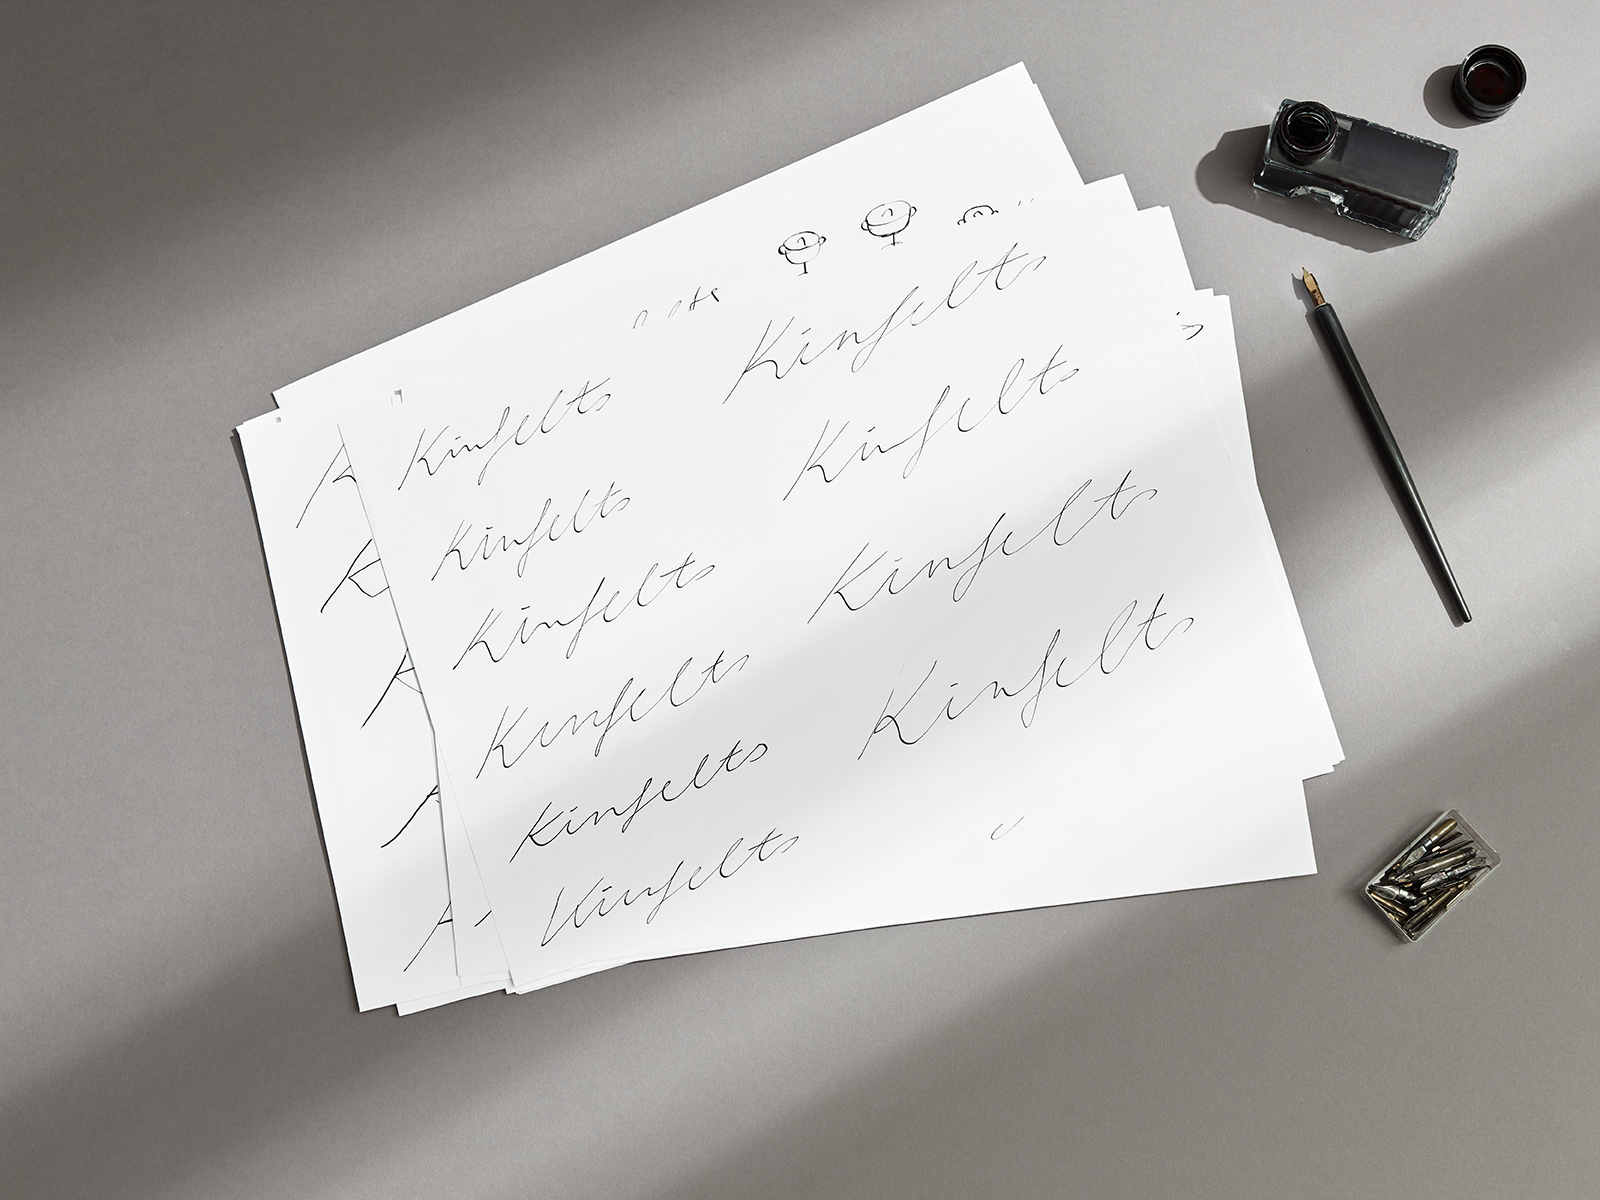 Kinfelts
Kinfelts
Kinfelts
Kinfelts
Kinfelts
Kinfelts
Kinfelts
Kinfelts
Kinfelts
Kinfelts